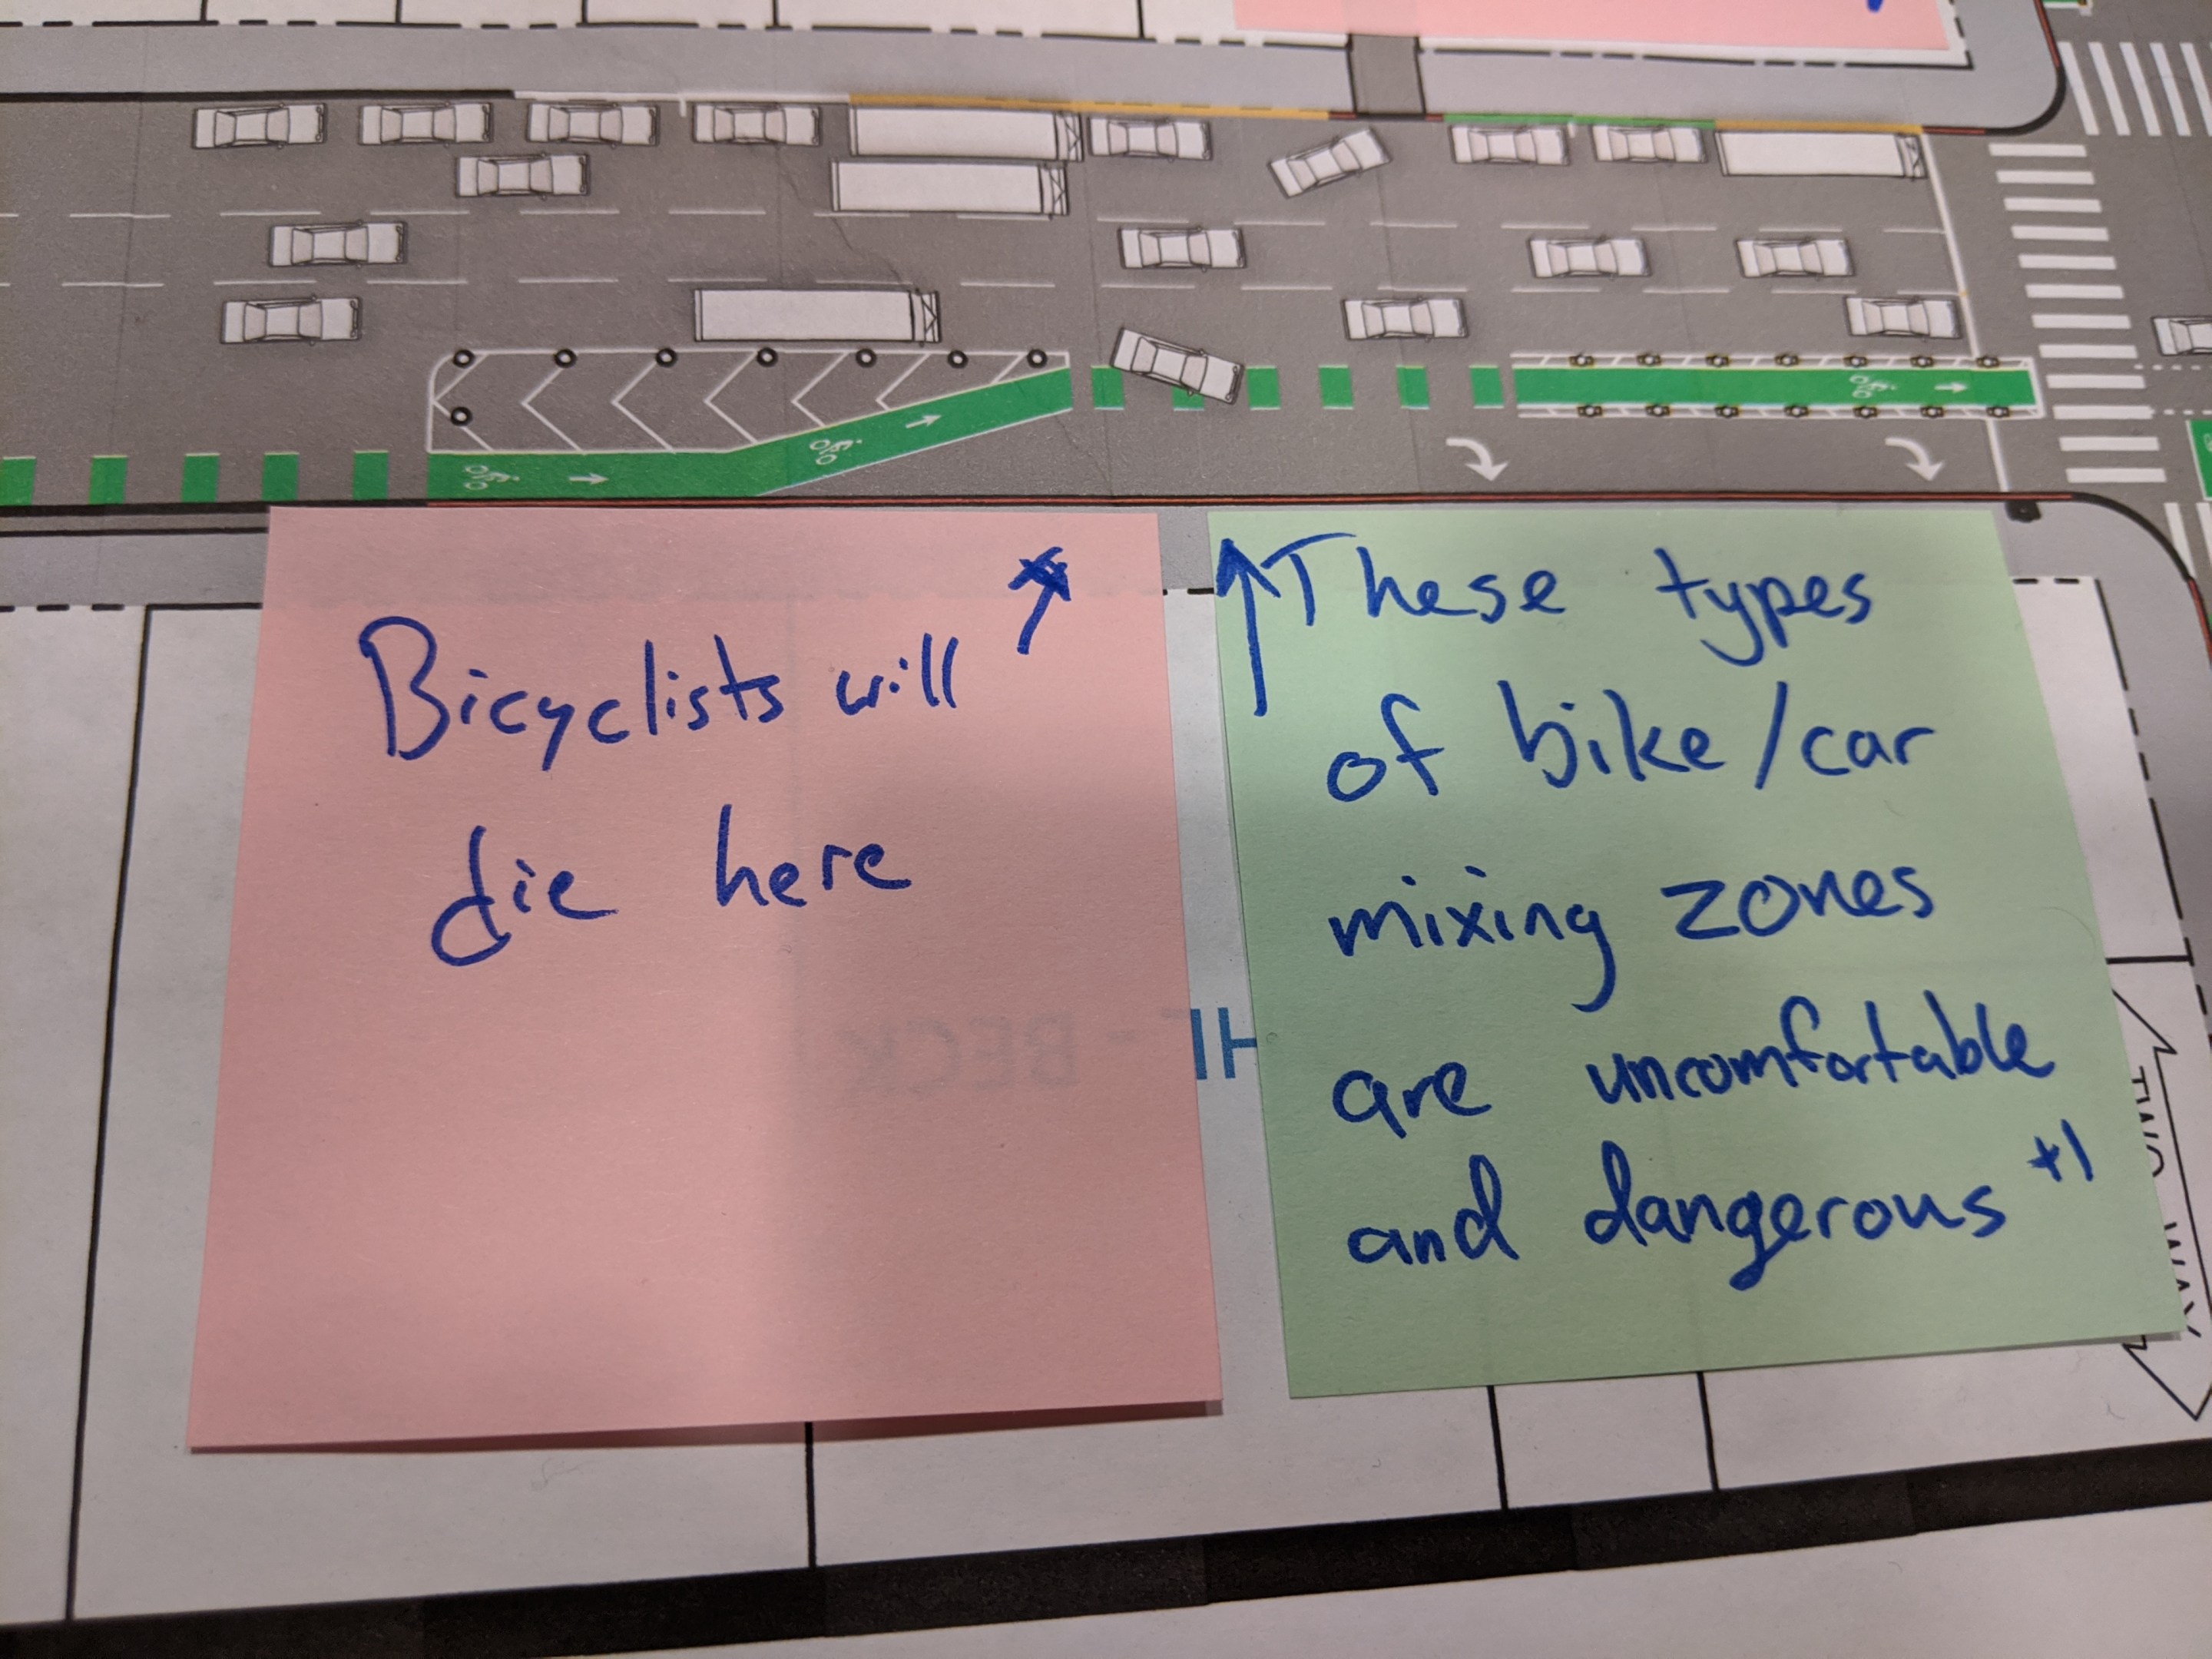 Bicyclists will
die here
These types
of bike/car
mixing zones
are uncomfortable
and dangerous +1
TWO WAY